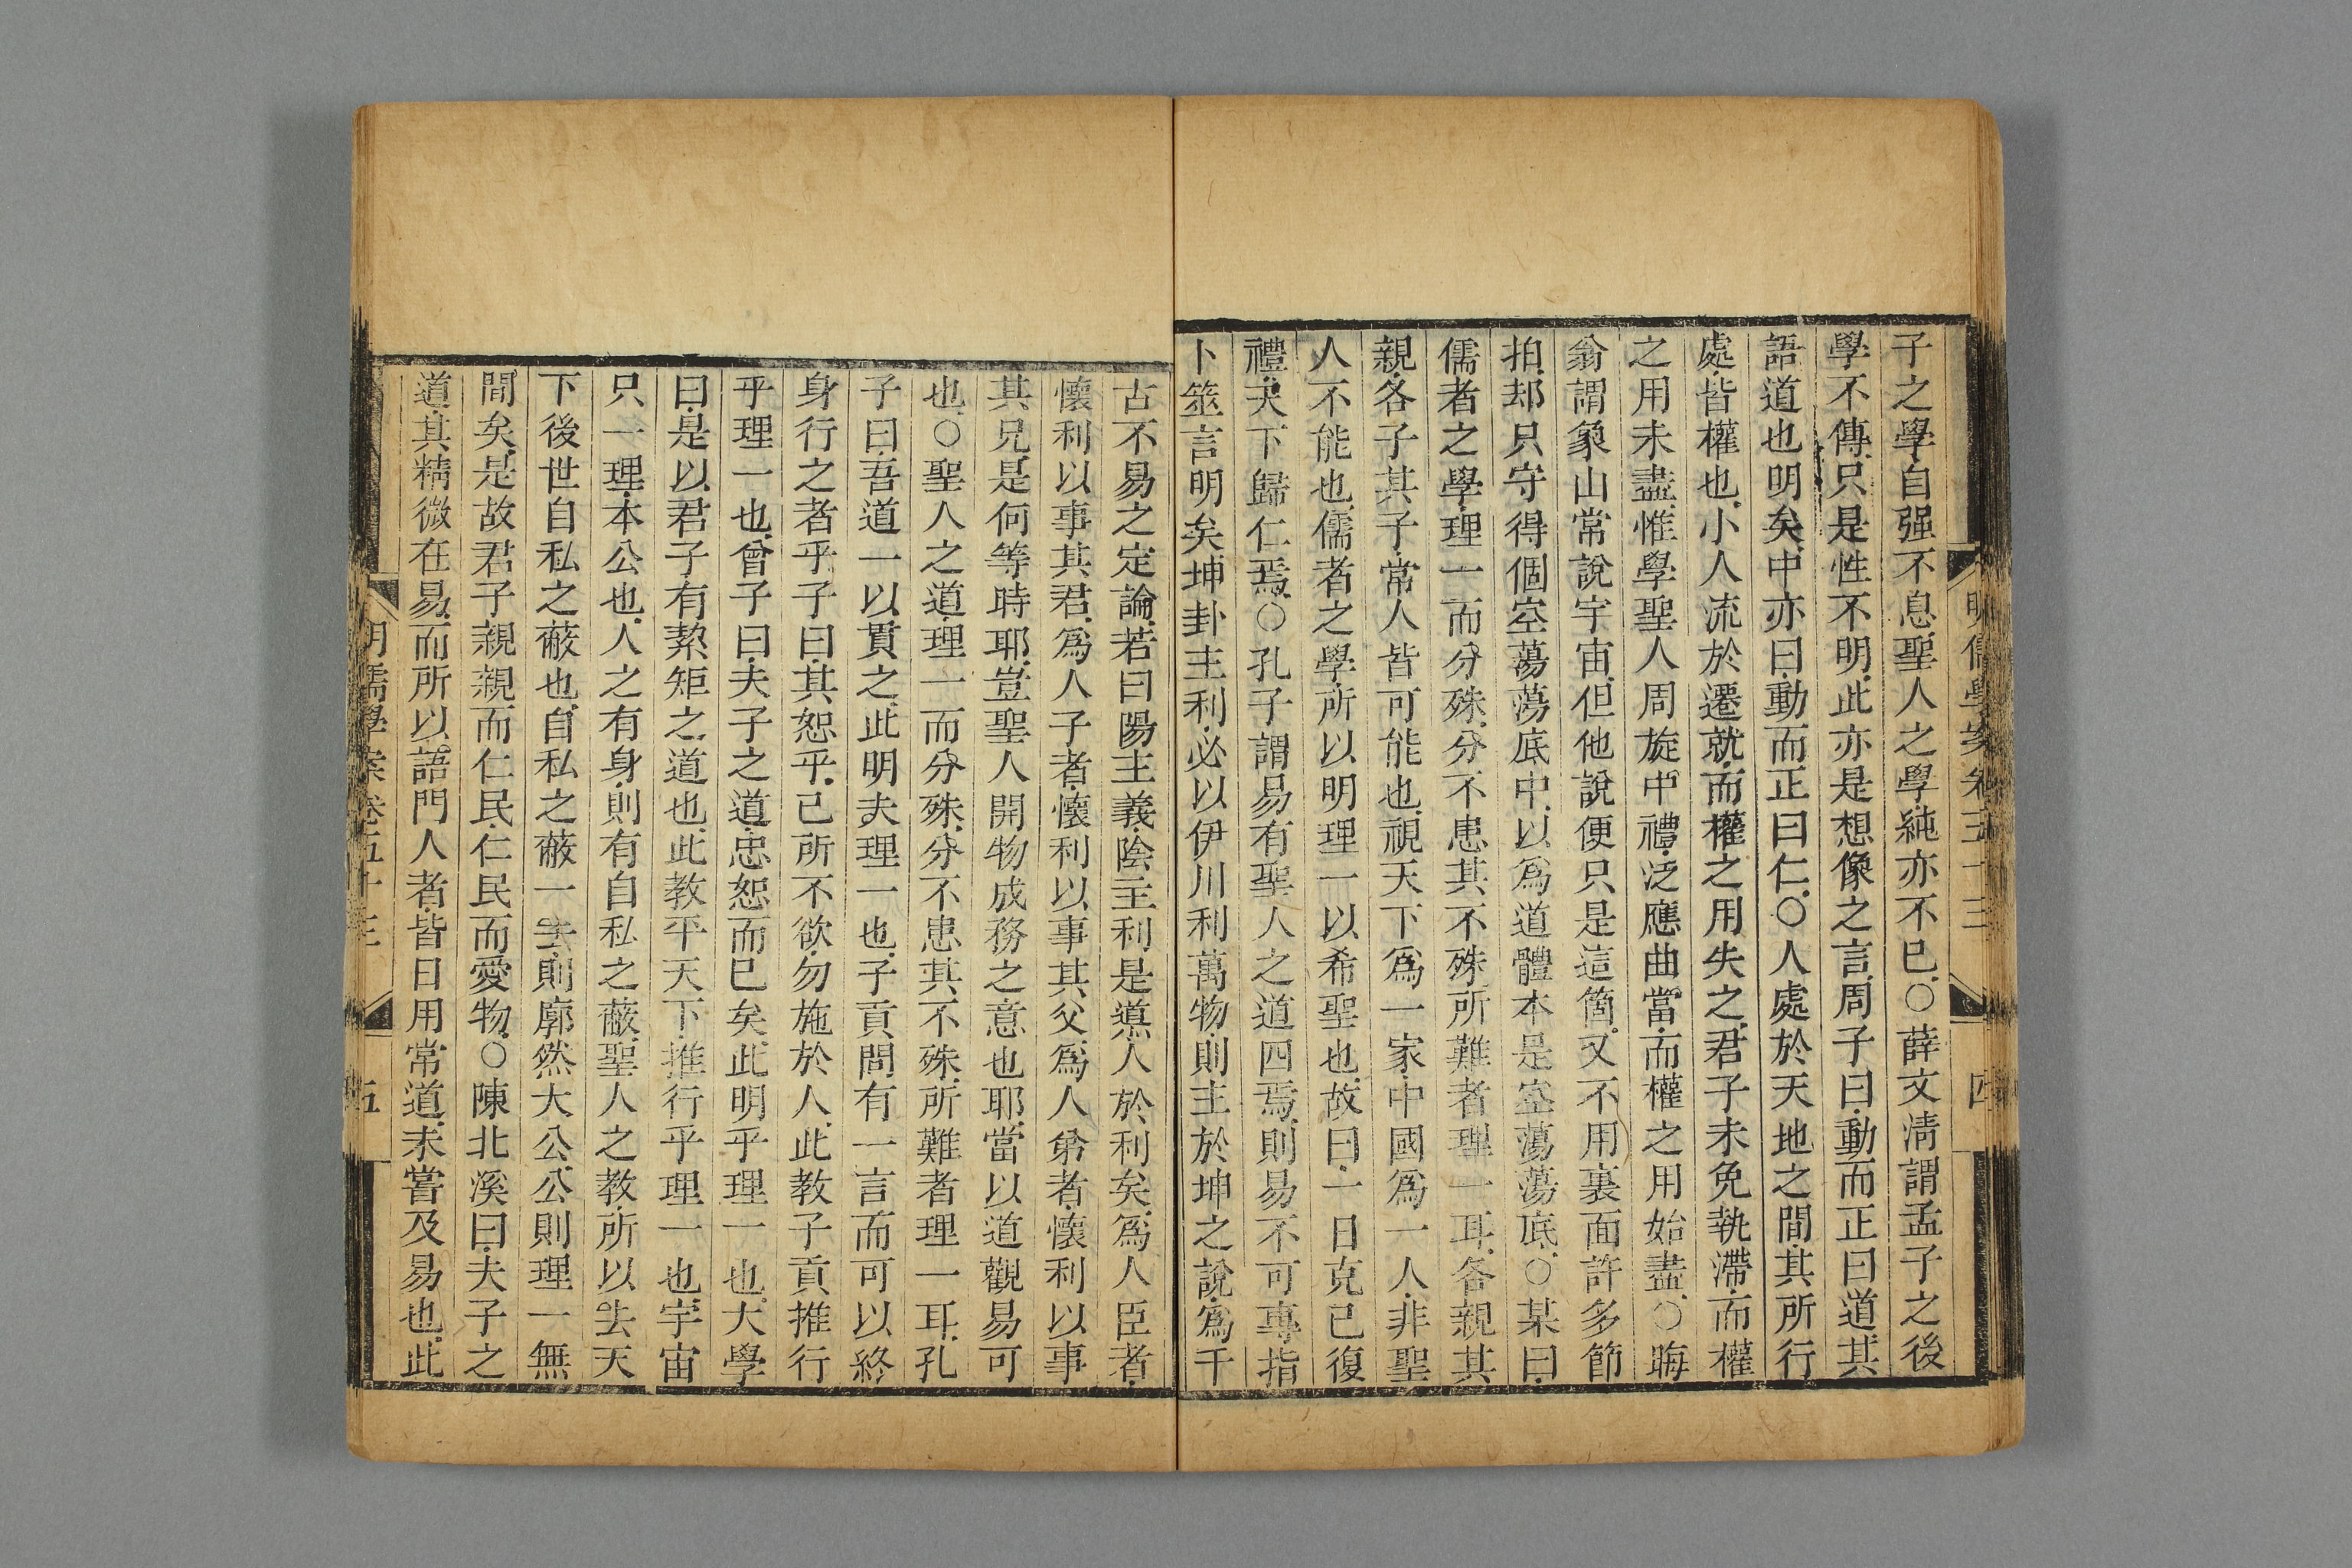 明儒學案卷五十三 四
子之學自强不息聖人之學純亦不已○薛文清謂孟子之後
學不傳只是性不明此亦是想像之言周子曰動而正曰道其
語道也明矣中亦曰動而正曰仁○人處於天地之間其所行
處皆權也小人流於遷就而權之用失之君子未免執滯而權
之用未盡惟學聖人周旋中禮泛應曲當而權之用始盡○晦
翁謂象山常說宇宙但他說便只是這箇又不用裏面許多節
拍却只守得個空蕩蕩底中以爲道體本是空蕩蕩底○某曰
儒者之學理一而分殊分不患其不殊所難者理一耳各親其
親各子其子常人皆可能也視天下爲一家中國爲一人非聖
人不能也儒者之學所以明理一以希聖也故曰一日克已復
禮天下歸仁焉○孔子謂易有聖人之道四焉則易不可專指
卜筮言明矣坤卦主利必以伊川利萬物則主於坤之說爲千
古不易之定論若曰陽主義陰主利是導人於利矣爲人臣者
懷利以事其君爲人子者懷利以事其父爲人弟者懷利以事
其兄是何等時耶豈聖人開物成務之意也耶當以道觀易可
也○聖人之道理一而分殊分不患其不殊所難者理一耳孔
子曰吾道一以貫之此明夫理一也子貢問有一言而可以終
身行之者乎子曰其恕乎己所不欲勿施於人此教子貢推行
乎理一也曾子曰夫子之道忠恕而已矣此明乎理一也大學
曰是以君子有絜矩之道也此教平天下推行乎理一也宇宙
只一理本公也人之有身則有自私之蔽聖人之教所以去天
下後世自私之蔽也自私之蔽一去則廓然大公公則理一無
間矣是故君子親親而仁民仁民而愛物○陳北溪曰夫子之
道其精微在易而所以語門人者皆日用常道未嘗及易也此
明儒學案卷五十三 五